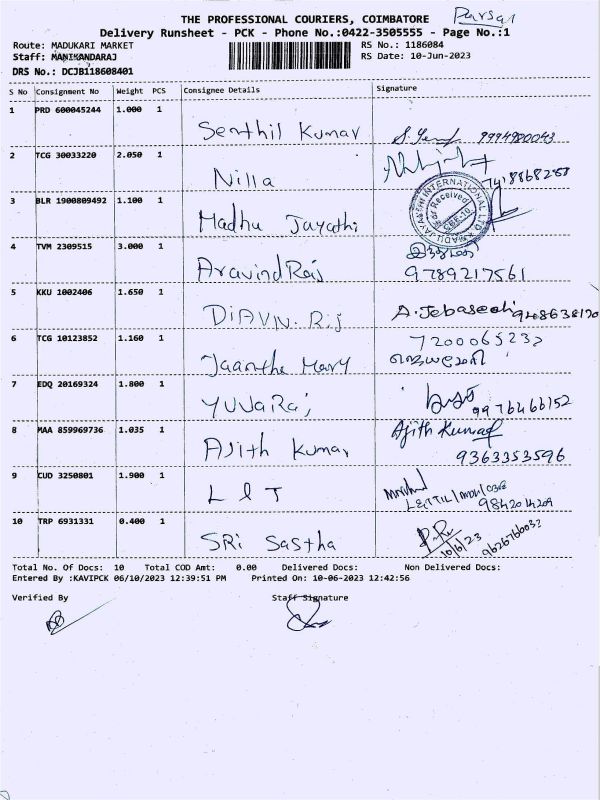 THE PROFESSIONAL COURIERS, COIMBATORE
Delivery Runsheet - PCK - Phone No.:0422-3505555 - Page No.:1
Route: MADUKARI MARKET
RS No.: 1186084
Staff: MANIKANDARAJ
RS Date: 10-Jun-2023
DRS No.: DCJB118608401
S No Consignment No Weight PCS Consignee Details Signature
1 PRD 600045244 1.000 1 Senthil Kumar
2 TCG 30033220 2.050 1 Nilla
3 BLR 1900809492 1.100 1 Madhu Jayathi
4 TVM 2309515 3.000 1 Aravind Raj 9789217561
5 KKU 1002406 1.650 1
6 TCG 10123852 1.160 1 Mary 7200065232
7 EDQ 20169324 1.800 1 YUVaRaj
8 MAA 859969736 1.035 1 Ajith Kumar Ajith Kumar 9363353596
9 CUD 3250801 1.900 1 L & T
10 TRP 6931331 0.400 1 SRi Sastha 10/6/23
Total No. Of Docs: 10 Total COD Amt: 0.00 Delivered Docs: Non Delivered Docs:
Entered By :KAVIPCK 06/10/2023 12:39:51 PM Printed On: 10-06-2023 12:42:56
Verified By Staff Signature